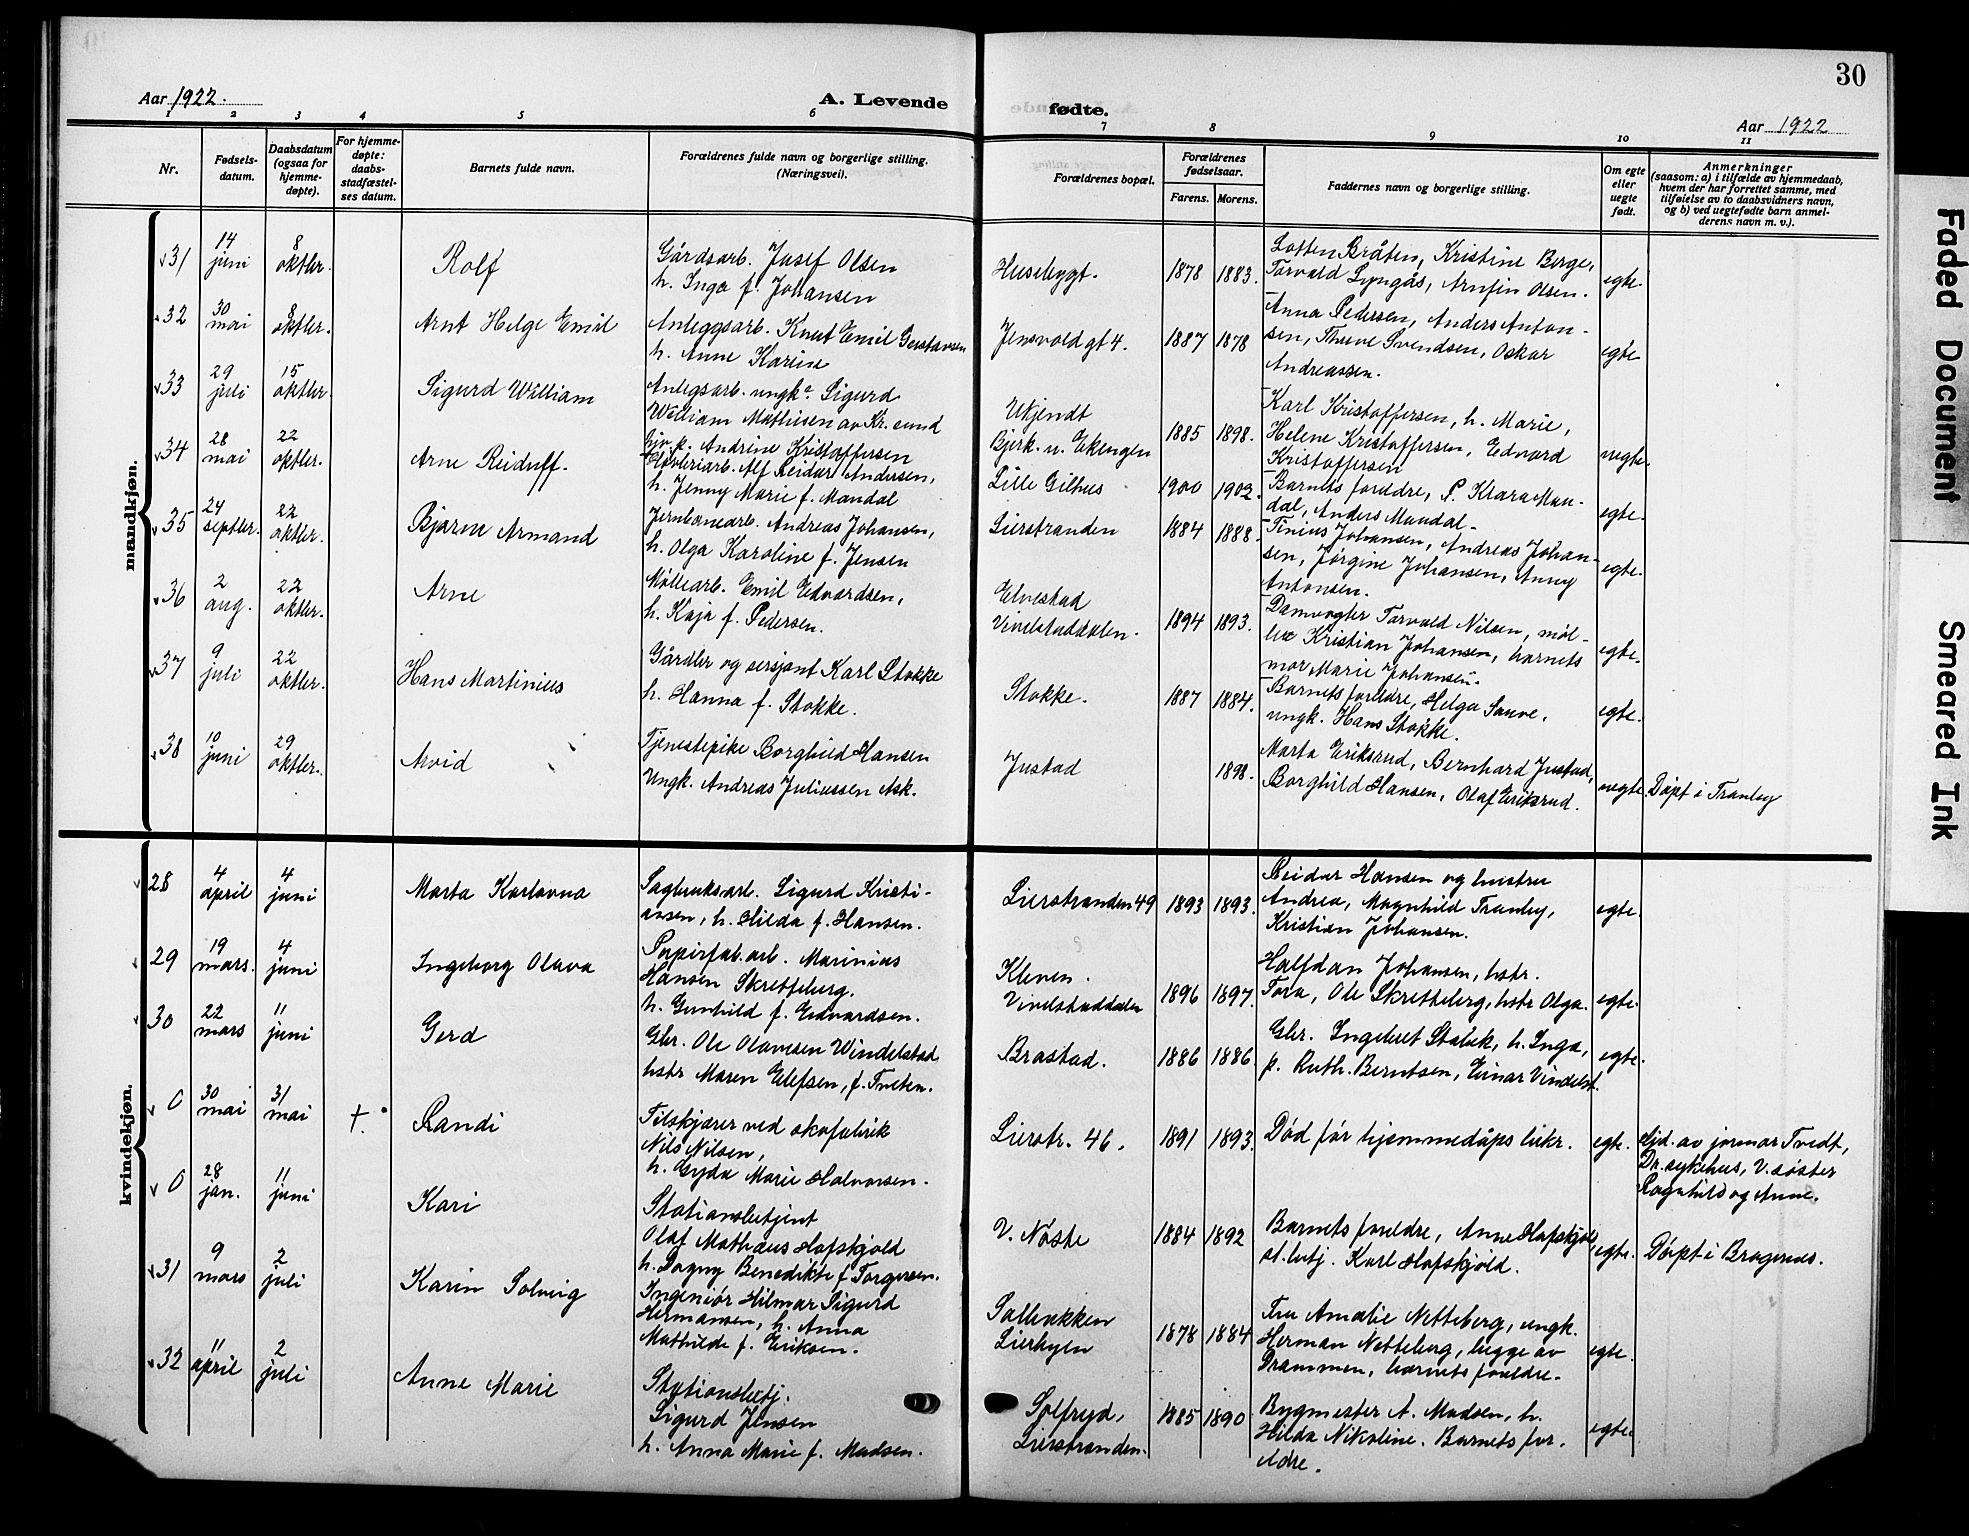 30
Aar 1922.
A. Levende
fødte.
Aar 1922
1 2 3 4 5 6 7 8 9 10 11
Nr.
Fødsels-
datum.
Daabsdatum
(ogsaa for
hjemme-
døpte).
For hjemme-
døpte:
daabs-
stadfæstel-
ses datum.
Barnets fulde navn.
Forældrenes fulde navn og borgerlige stilling.
(Næringsvei).
Forældrenes bopæl.
Forældrenes
fødselsaar.
Farens. Morens.
Faddernes navn og borgerlige stilling.
Om egte
eller
uegte
født.
Anmerkninger
(saasom: a) i tilfælde av hjemmedaab,
hvem der har forrettet samme, med
tilføielse av to daabsvidners navn,
og b) ved uegtefødte barn anmel-
derens navn m. v.).
mandkjøn.
31
14
juni
8
oktbr.
Rolf
Gårdsarb. Josef Olsen
h. Inga f. Johansen
Husebygt.
1878 1883.
Loften Bråten, Kristine Berge,
Torvald Lyngås, Arnfin Olsen.
egte.
32
30
mai
8
oktbr.
Arnt Helge Emil
Anleggsarb. Knut Emil Gustavsen
h. Anne Karine
Jensvoldgt 4.
1887 1878
Anna Pedersen, Anders Anton-
sen, Thove Svendsen, Oskar
Andreassen.
egte
33
29
juli
15
oktbr.
Sigurd William
Anlegsarb. ungk. Sigurd
William Mathisen av Kr.sund
p. Andrine Kristoffersen
Ukjendt
Bjerk. u. Ekengen
1885 1898.
Karl Kristoffersen, h. Marie,
Helene Kristoffersen, Edvard
Kristoffersen
uegte.
34
28
mai
22
oktbr.
Arne Reidulf.
Høvleriarb. Alf Reidar Andersen,
h. Jenny Marie f. Mandal
Lille Gilhus
1900 1902.
Barnets foreldre, P. Klara Man-
dal, Anders Mandal-
egte.
35
24
septbr.
22
oktbr.
Bjarne Armand
Jernbanearb. Andreas Johansen,
h. Olga Karoline f. Jensen
Lierstranden
1884 1888.
Tinius Johansen, Andreas Johan-
sen, Jørgine Johansen, Anny
Antonsen.
egte.
36
2
aug.
22
oktbr.
Arne
Møllearb. Emil Edvardsen,
h. Kaja f. Pedersen.
Elvestad
Vivelstaddalen.
1894 1893.
Damvogter Torvald Nilsen, møl-
ler Kristian Johansen, barnets
mor Marie Johansen.
egte.
37
9
juli
22
oktbr.
Hans Martinius
Gårdbr og sersjant Karl Stokke
h. Hanna f. Stokke.
Stokke.
1887 1884.
Barnets foreldre, Helga Sauve,
ungk. Hans Stokke.
egte.
38
10
juni
29
oktbr.
Arvid
Tjenestepike Borghild Hansen
Ungk. Andreas Juliussen Ask.
Justad
1898.
Marta Eriksrud, Bernhard Justad,
Borghild Hansen, Olaf Eriksrud.
uegte.
Døpt i Tranby
kvindekjøn.
28
4
april
4
juni
Marta Karlovna
Sagbruksarb. Sigurd Kristi-
ansen, h. Hilda f. Hansen.
Lierstranden 49
1893 1893.
Reidar Hansen og hustru
Andrea, Magnhild Tranby,
Kristian Johansen.
egte.
29
19
mars.
4
juni
Ingeborg Olava
Papirfab.arb. Marinius
Hansen Skretteberg.
h. Gunhild f. Edvardsen.
Kleven.
Vivelstaddalen
1896 1897.
Halfdan Johansen, hstr.
Tora, Ole Skretteberg, hstr Olga.
egte.
30
22
mars
11
juni
Gerd
Gbr. Ole Olavesen Windelstad
hstr Maren Elefsen, f. Tveten.
Brastad.
1886 1886.
Gbr. Ingebret Stabek, h. Inga,
p. Ruth Berntsen, Einar Vindelst.
egte.
0
30
mai
31
mai
+.
Randi
Tilskjærer ved skofabrik
Nils Nilsen,
h. Gyda Marie Halvorsen.
Lierstr. 46.
1891 1893.
Død før hjemmedåps bekr.
egte.
Hjd. av jormor Tvedt,
Dr. sykehus, V. søster
Ragnhild og Anne.
0
28
jan.
11
juni
Kari
Stationsbetjent
Olaf Mathæus Hofskjold
h. Dagny Benedikte f. Torgersen.
V. Nøste
1884 1892
Barnets foreldre, Anne Hofskjold,
st.betj. Karl Hofskjold.
egte.
Døpt i Bragernes.
31
9
mars
2
juli
Karin Solveig
Ingeniør Hilmar Sigurd
Hermansen, h. Anna
Mathilde f. Eriksen.
Solbakken
Lierbyen
1878 1884
Fru Amalie Netteberg, ungk.
Herman Netteberg, begge av
Drammen, barnets foreldre.
egte.
32
11
april
2
juli
Anne Marie
Stationsbetj.
Sigurd Jensen
h. Anna Marie f. Madsen.
Solfryd,
Lierstranden.
1885 1890
Bygmester A. Madsen, h.
Hilda Nikoline. Barnets for-
eldre.
egte.
Faded Document
Smeared Ink